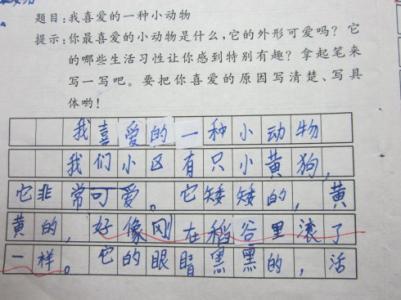 题目:我喜爱的一种小动物
提示:你最喜爱的小动物是什么,它的外形可爱吗? 它
的哪些生活习性让你感到特别有趣? 拿起笔来
写一写吧。要把你喜爱的原因写清楚、写具
体哟!
我喜爱的一种小动物
我们小区有只小黄狗,
它非常可爱。它矮矮的,黄
黄的,好像刚在稻谷里滚了
一样。它的眼睛黑黑的,活